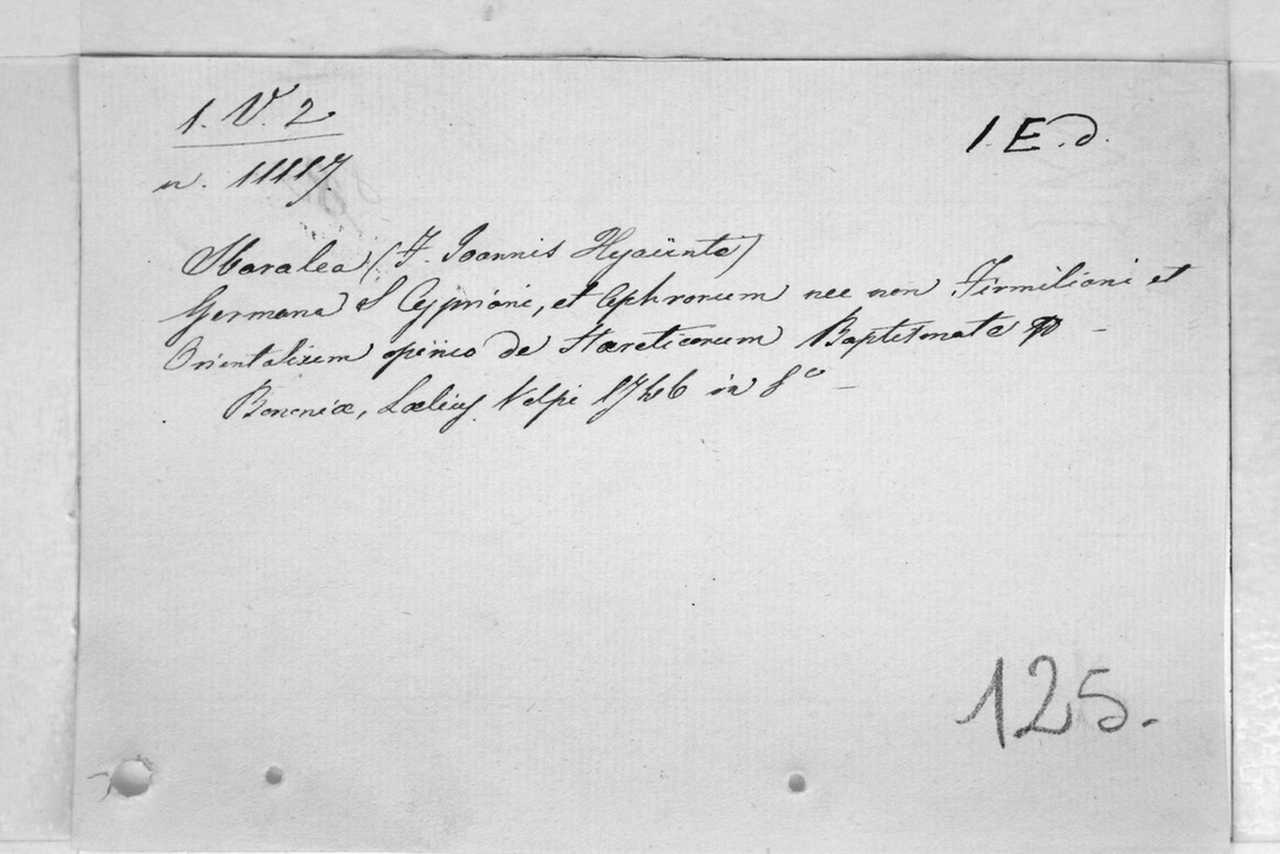 1. V. 2
n. 11117.
1. E. d.
(F. Joannis Hyacinte)
Germana S Cypriani, et Aphrorum nec non Firmiliani et
Orientalium opinio de Haereticorum Baptismate
Bononiæ, Lælius Vulpe 1746 in 8º
125.